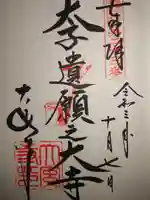 令和三年
十月七日
太子遺願之大寺
大安寺